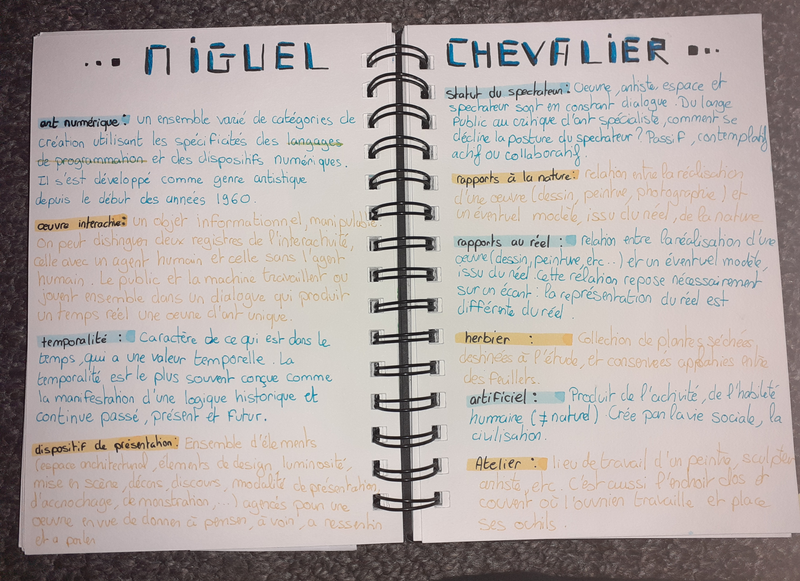 ... MIGUEL
art numérique : un ensemble varié de catégories de
création utilisant les spécificités des langages
de programmation et des dispositifs numériques.
Il s'est développé comme genre artistique
depuis le début des années 1960.
œuvre interactive : un objet informationnel, manipulable.
On peut distinguer deux registres de l'interactivité,
celle avec un agent humain et celle sans l'agent
humain. Le public et la machine travaillent ou
jouent ensemble dans un dialogue qui produit
un temps réel une oeuvre d'art unique.
temporalité : Caractère de ce qui est dans le
temps, qui a une valeur temporelle. La
temporalité est le plus souvent conçue comme
la manifestation d'une logique historique et
continue passé, présent et futur.
dispositif de présentation : Ensemble d'éléments
(espace architectural, éléments de design, luminosité,
mise en scène, décors, discours, modalité de présentation,
d'accrochage, de monstration, ...) agencés pour une
oeuvre en vue de donner à penser, à voir, a ressentir
et a parler
CHEVALIER ...
statut du spectateur : Oeuvre, artiste, espace et
spectateur sont en constant dialogue. Du large
Public au critique d'art spécialiste, comment se
décline la posture du spectateur ? Passif, contemplatif
actif ou collaboratif.
rapports à la nature : relation entre la réalisation
d'une oeuvre (dessin, peinture, photographie) et
un éventuel modèle, issu du réel, de la nature
rapports au réel : relation entre la réalisation d'une
œuvre (dessin, peinture, etc..) et un éventuel modèle,
issu du réel. Cette relation repose nécessairement
sur un écart : la représentation du réel est
différente du réel.
herbier : Collection de plantes séchées
destinées à l'étude, et conservées aplaties entre
des feuillets.
artificiel : Produit de l'activité, de l'habileté
humaine (≠ naturel). Crée par la vie sociale, la
civilisation.
Atelier : lieu de travail d'un peintre, sculpteur
artiste, etc. C'est aussi l'endroit clos et
couvert où l'ouvrier travaille et place
ses outils.